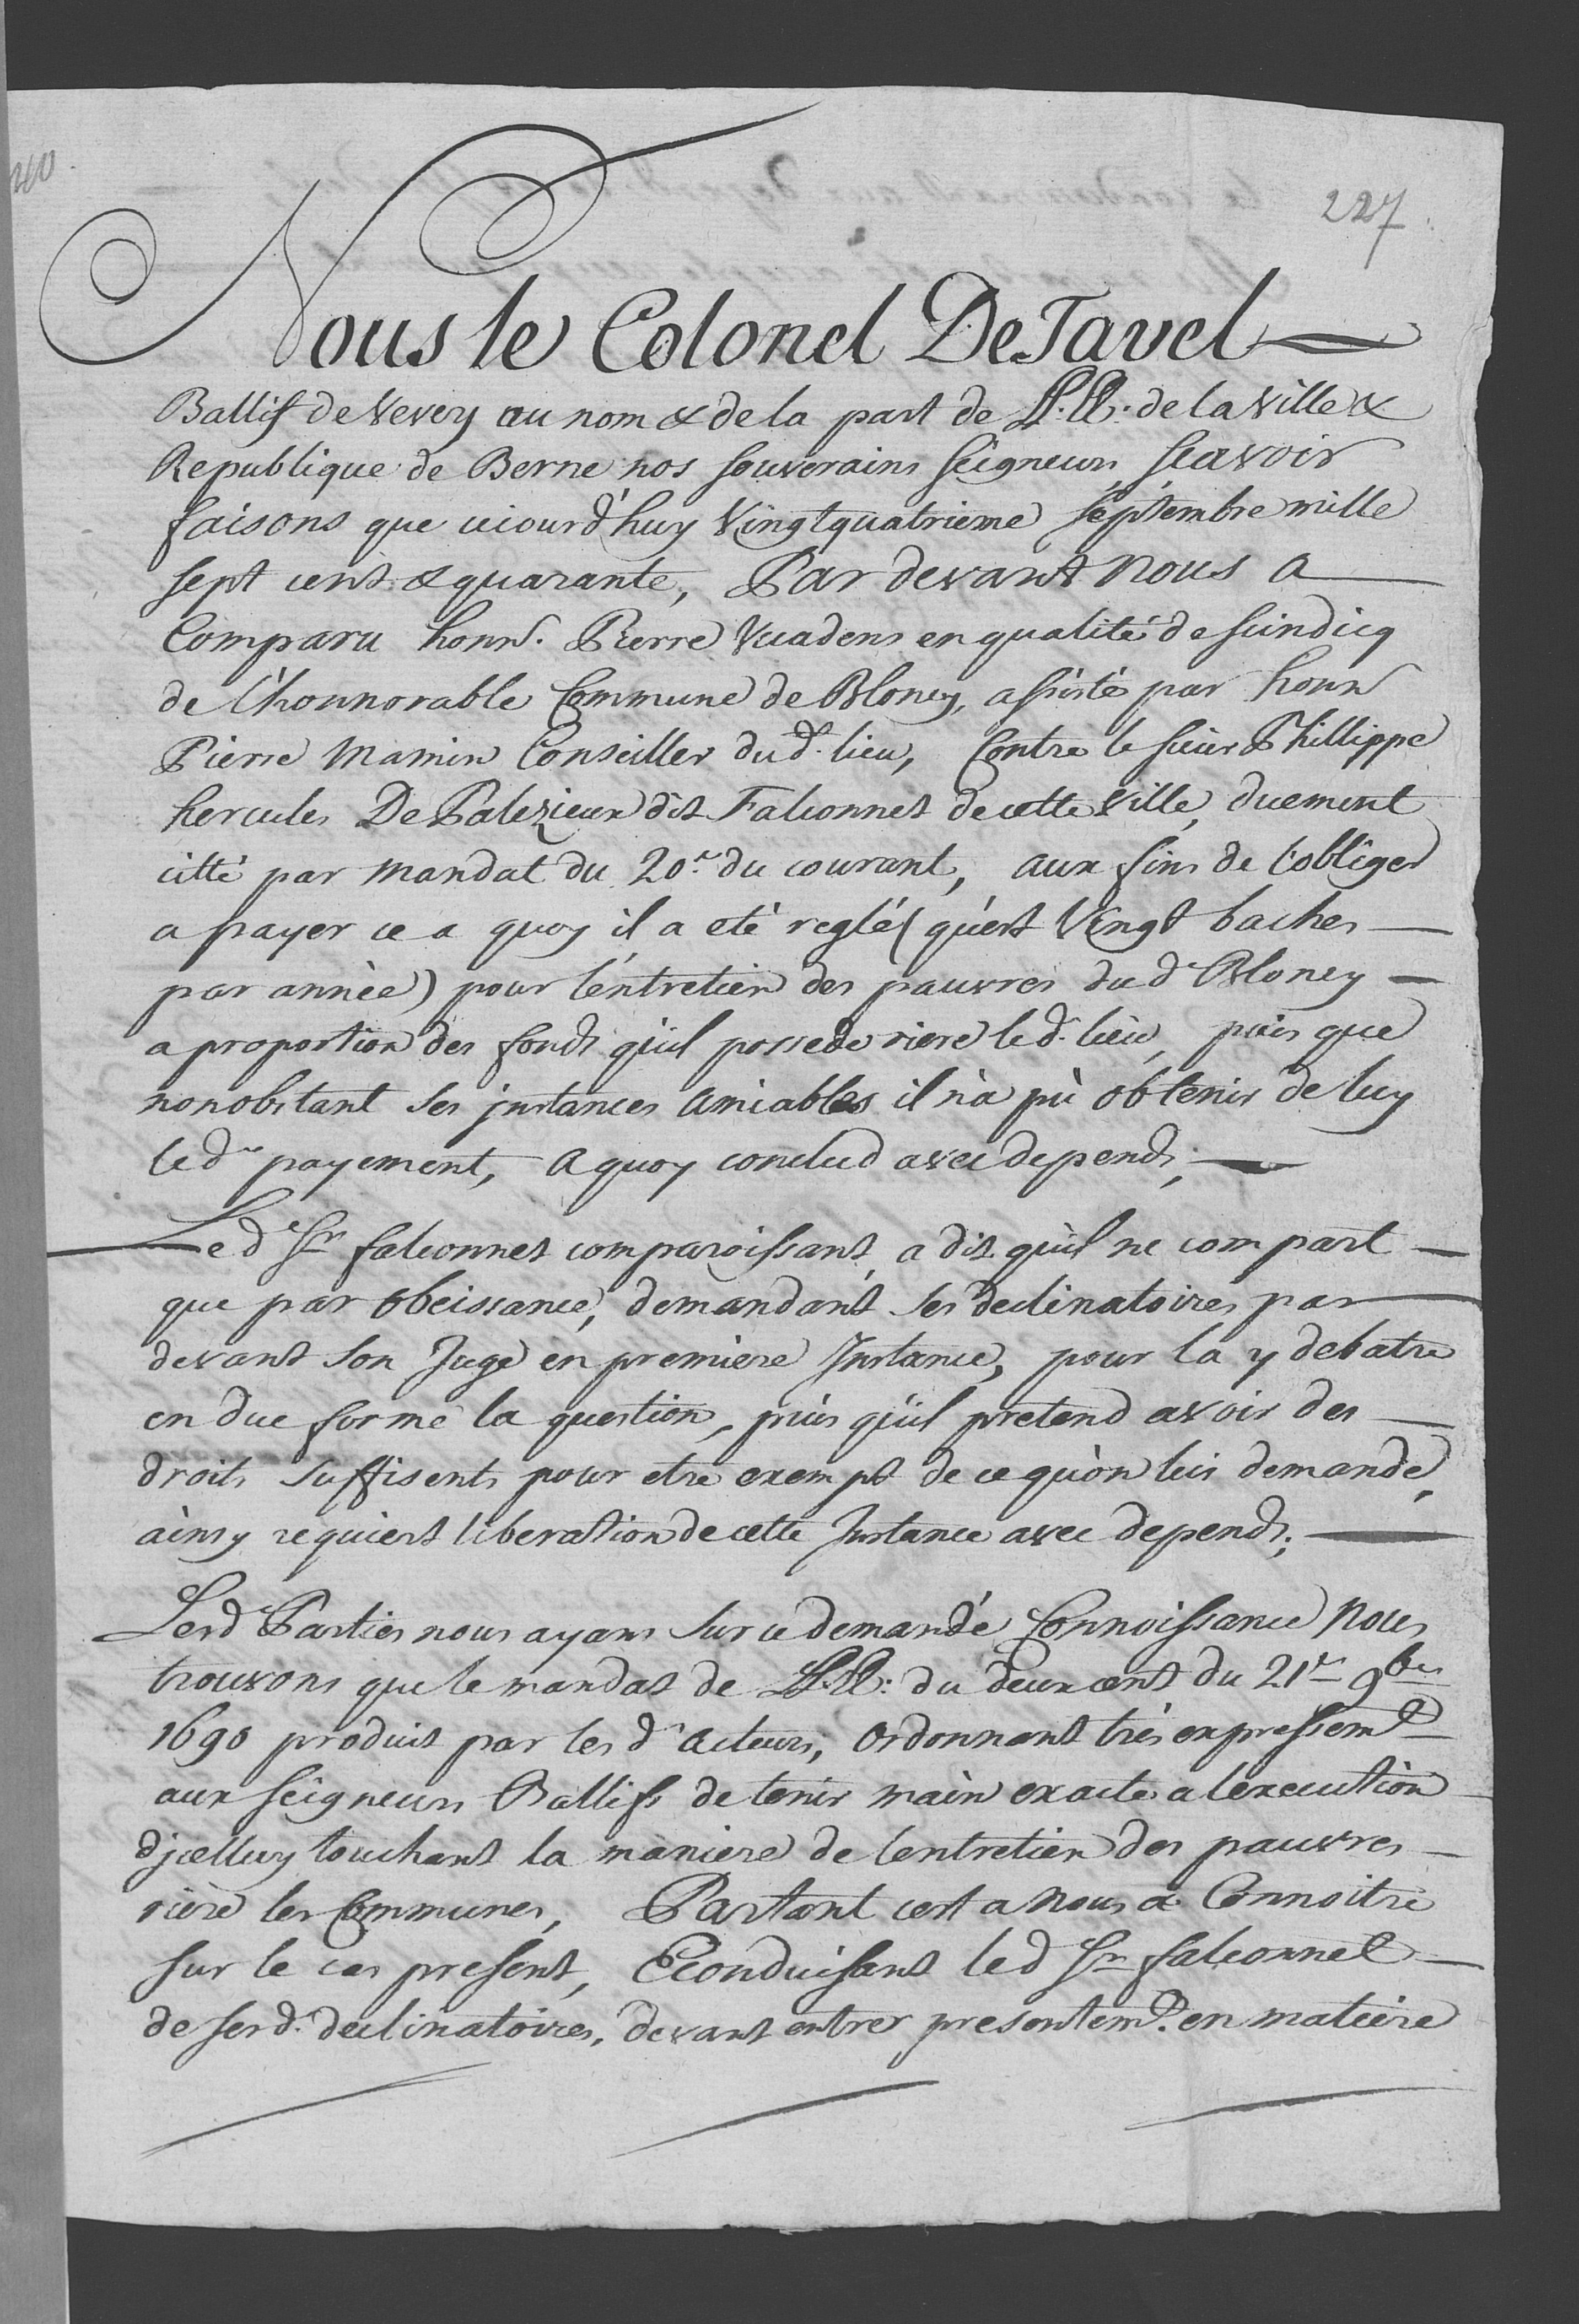 227.
Nous le Colonel De Tavel
Ballif de Vevey au nom & de la part de LL.EE: de la Ville &
Republique de Berne nos souverains seigneurs, scavoir
faisons que ceiourd'huy Vingtquatrieme septembre mille
sept cents & quarante, Par devant nous a
Comparu honn. Pierre Vuadens en qualité de scindicq
de l'honnorable Commune de Bloney, assisté par honn
Pierre Mamin Conseiller dud. lieu, Contre le sieur Phillippe
hercules De Palezieux dit Falconnet de cette Ville, duement
citté par mandat du 20e. du courant, aux fins de l'obliger
a payer ce a quoy il a eté reglé (qu'est Vingt baches
par année) pour l'entretien des pauvres dud. Bloney
a proportion des fonds qu'il possede riere led. lieu, puis que
nonobstant ses jnstances amiables il n'a pû obtenir de luy
led. payement, a quoy conclud avec depends;
Led. Sr. falconnet comparoissant, a dit qu'il ne compart
que par obeissance, demandant ses declinatoires par
devant son Juge en premiere Jnstance, pour la y debatre
en due forme la question, puis qu'il pretend avoir des
droits suffisents pour etre exempt de ce qu'on lui demande,
ainsy requiert liberation de cette Jnstance avec depends;
Lesd. Parties nous ayans sur ce demandé Connoissance nous
trouvons que le mandat de LL.EE: du deux cent du 21e 9bre
1690 produit par les d. acteurs, ordonnant très expressemt
aux seigneurs Ballifs de tenir main exacte a l'execution
d'jcelluy touchant la maniere de l'entretien des pauvres
riere les Communes, Partant cest a nous a Connoitre
sur le cas present, Econduisant led Sr. falconnet
de sesd. declinatoires, devant entrer presentemt. en matiere